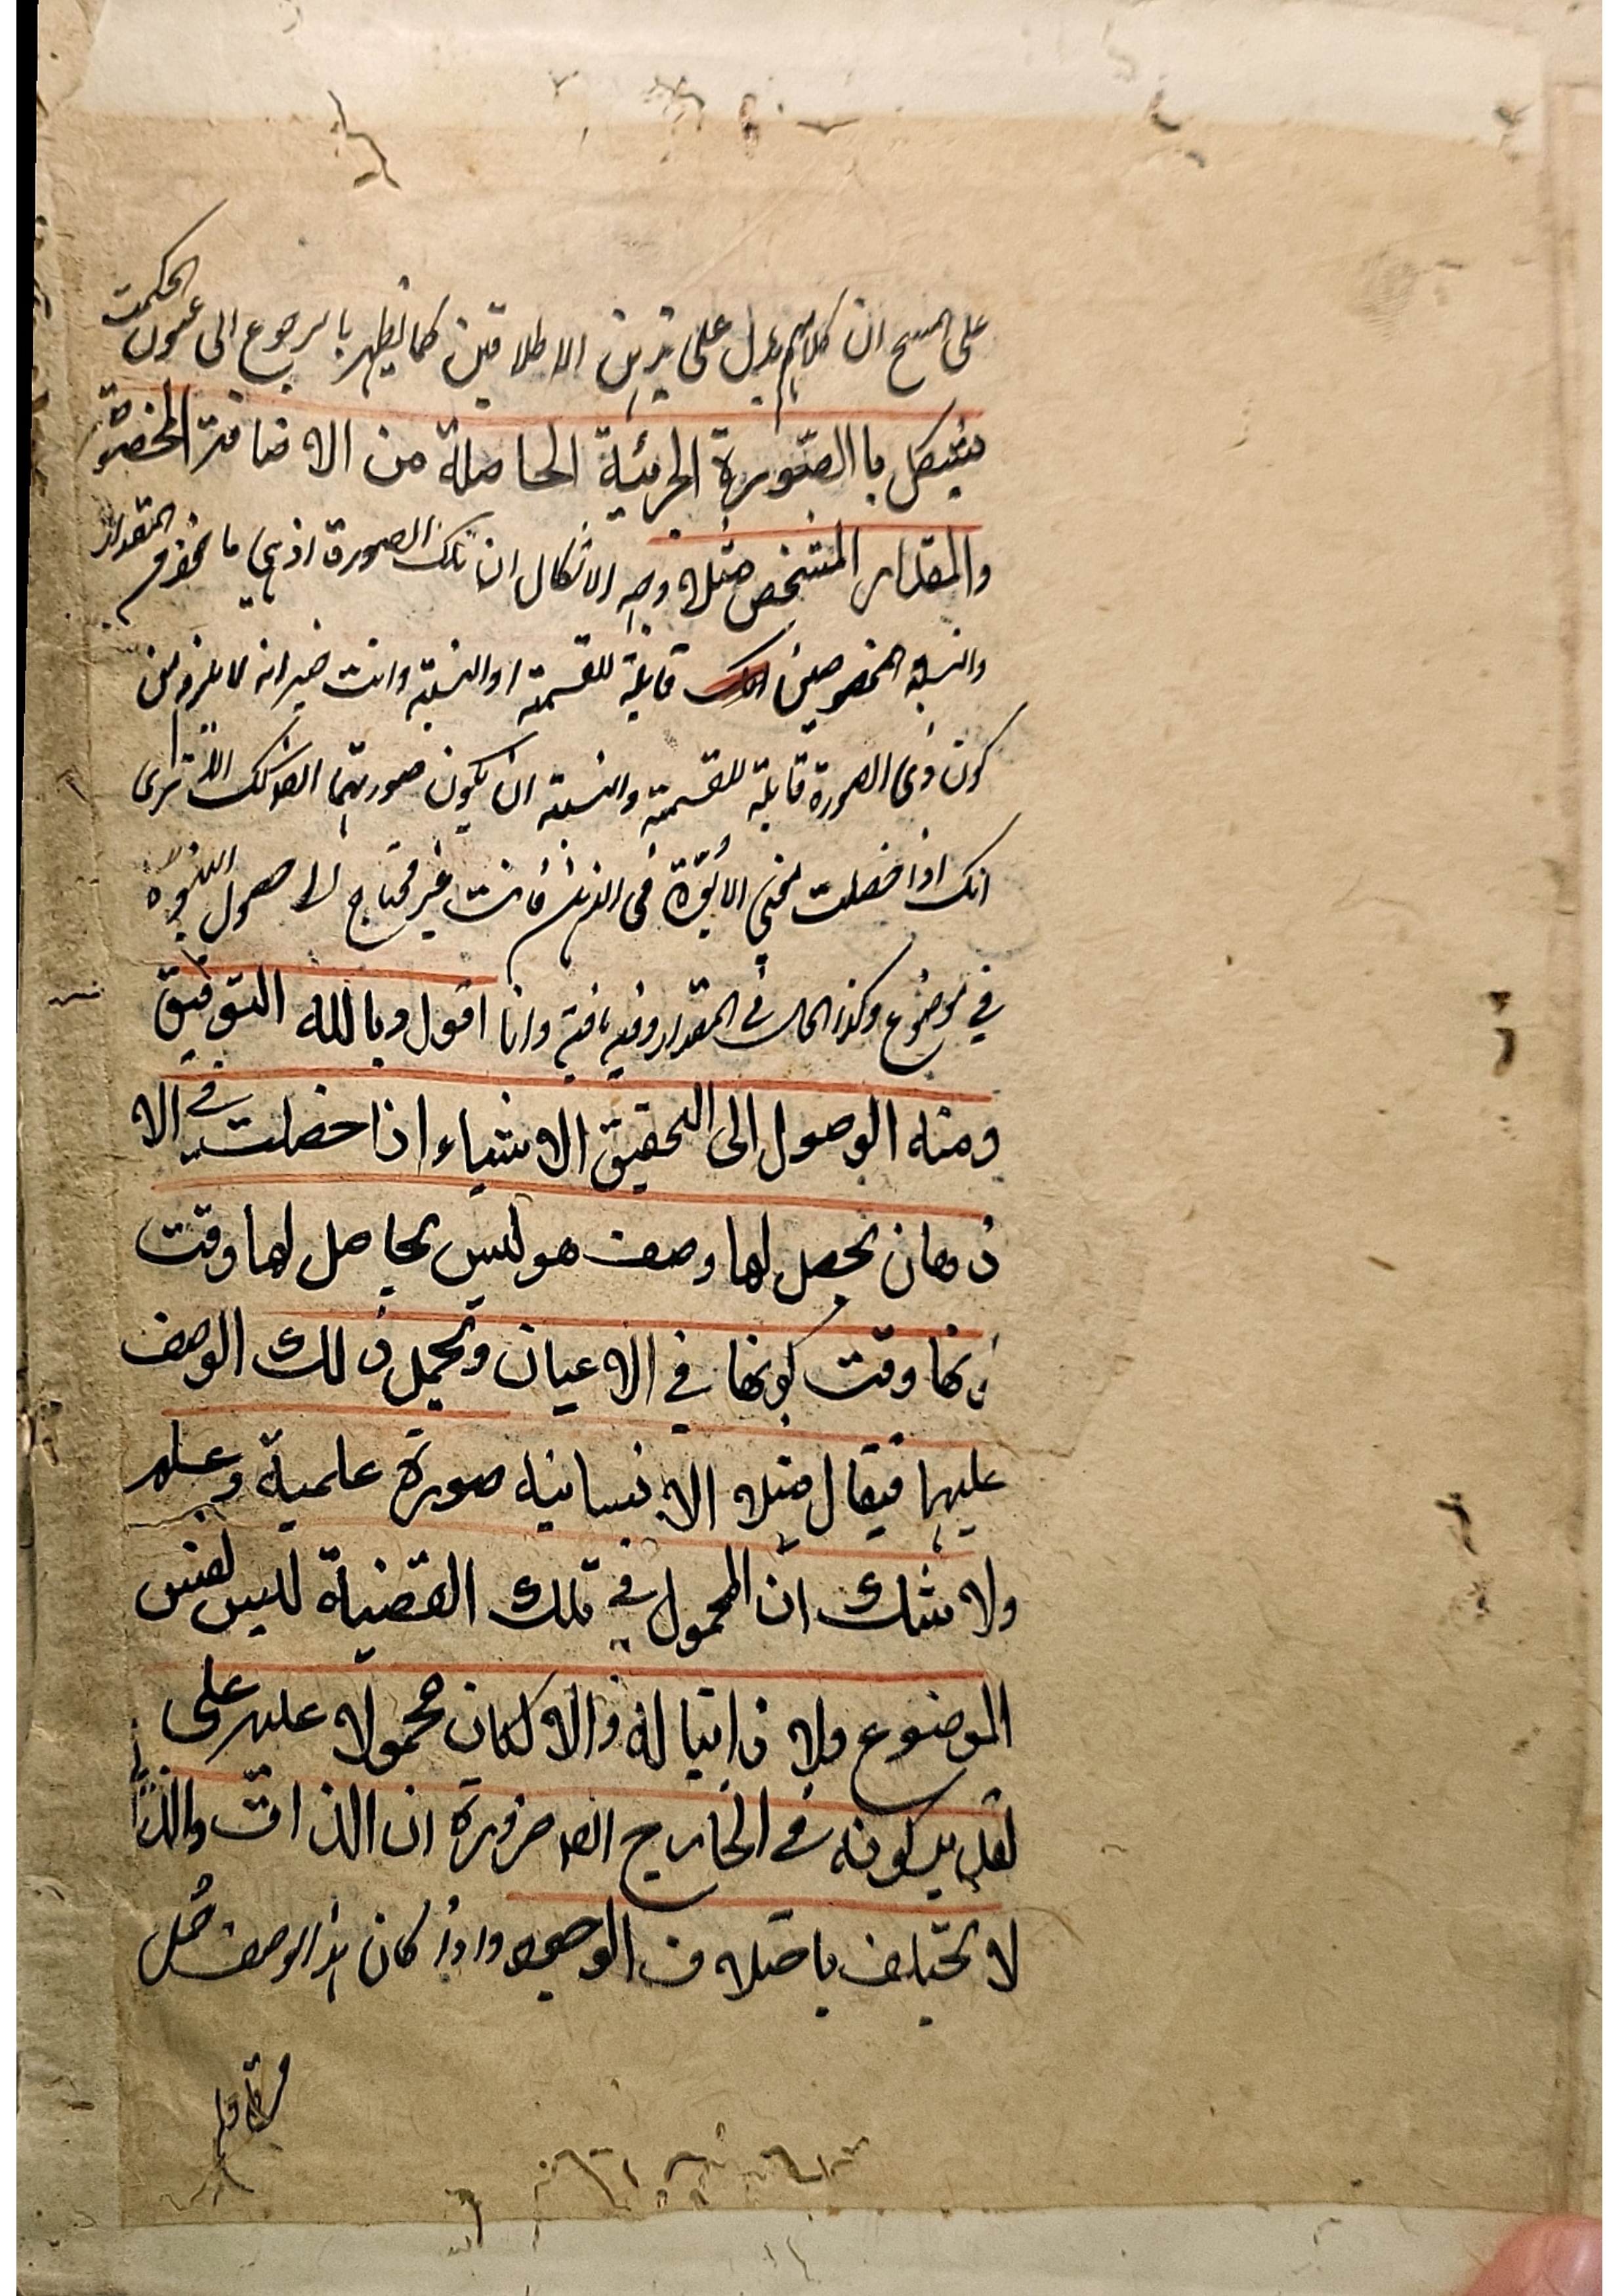 على انه كلامهم يدل على هذين الاطلاقين كما يظهر بالرجوع الى عيون الحكمت
يشكل با الصّورة الجزئية الحاصلة من الاضافة المخصوصة
والمقدار المشخص مثلا وجه الاشكال ان تلك الصورة اذ هي ما المقدار
والنسبة المخصوصين قابلة للقسمة او النسبة وانت خبير انه لا يلزم من
كون ذى الصورة قابلة للقسمة والنسبة ان يكون صورتهما كذلك الا ترى
انك اذا حصلت معنى الابوّة فى الذهن فانت غير محتاج لا حصول البنوة
في موضوع وكذا الحال في المقدار وفيه ما فيه وانا اقول وبالله التوفيق
ومنه الوصول الى التحقيق الاشياء اذا حصلت في الا
ذهان يحصل لها وصف هو ليس بحاصل لها وقت
نها وقت كونها في الاعيان ويحمل ذلك الوصف
عليها فيقال مثلا الانسانية صورة علمية وعلم
ولا شك انّ المحمول في تلك القضية ليس نفس
الموضوع ولا ذاتيا له والا لكان محمولا عليه على
تقدير كونه في الخارج ضرورة ان الذات والذا
لا يختلف باختلاف الوجود واذا كان هذا الوصف